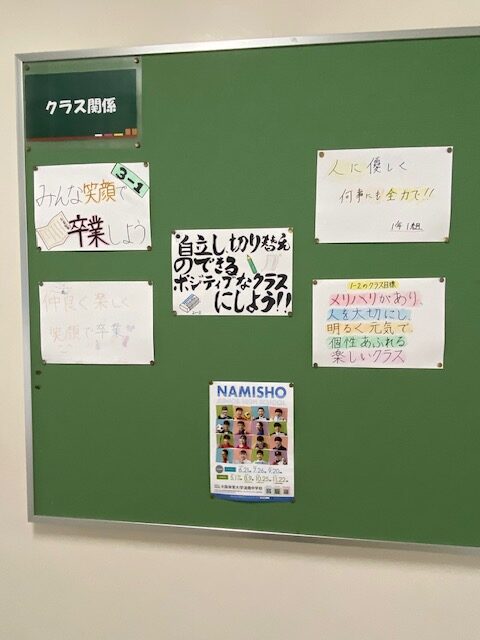 クラス関係
3-1
みんな笑顔で
卒業しよう
仲良く楽しく
笑顔で卒業
自立し、切り替え
のできる
ポジティブなクラス
にしよう!!
人に優しく
何事にも全力で!!
1年1組
1-2のクラス目標
メリハリがあり、
人を大切にし、
明るく元気で、
個性あふれる
楽しいクラス
NAMISHO
JUNIOR HIGH SCHOOL
大阪体育大学浪商中学校